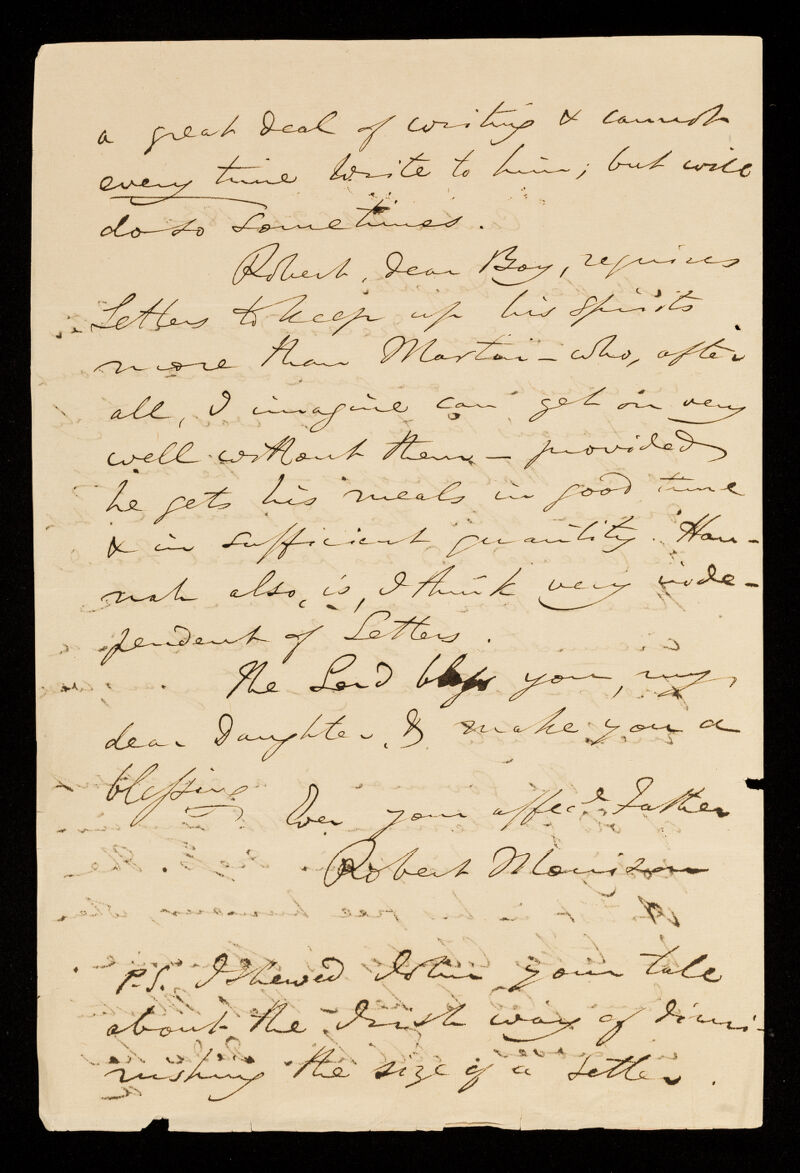 a great deal of writing & cannot
every time write to him; but will
do so sometimes.
Robert, dear Boy, requires
Letters to keep up his spirits
more than Martin – who, after
all, I imagine can get on very
well without them – provided
he gets his meals in good time
& in sufficient quantity. Han-
nah also, is, I think very inde-
pendent of Letters.
The Lord bless you, my
dear Daughter, & make you a
blessing
Ever your affecte Father
Robert Morrison
P.S. I shewed John your tale
about the Irish way of dimi-
nishing the size of a Letter.